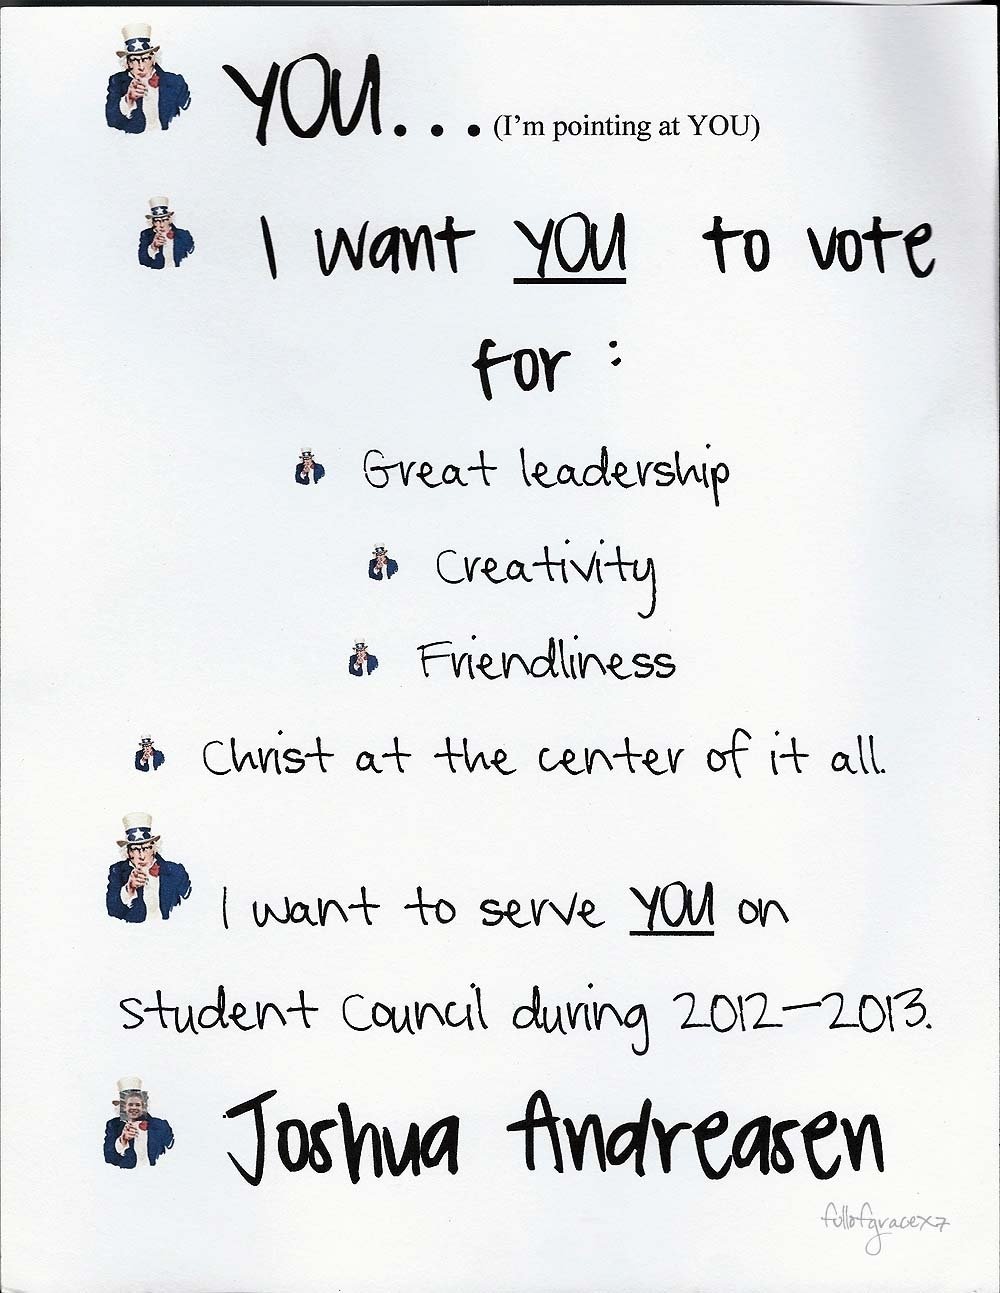 YOU... (I'm pointing at YOU)
I want YOU to vote
for :
Great leadership
Creativity
Friendliness
Christ at the center of it all.
I want to serve YOU on
student Council during 2012-2013.
Joshua Andreasen
fullofgracex7